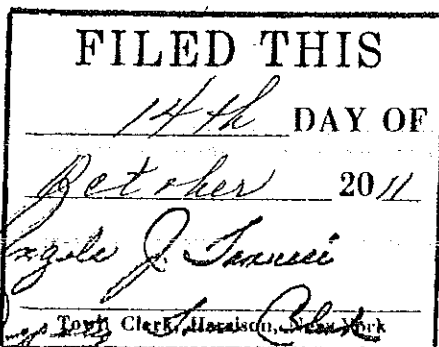 FILED THIS
14th DAY OF
October 2011
J.
Town Clerk, Harrison, New York